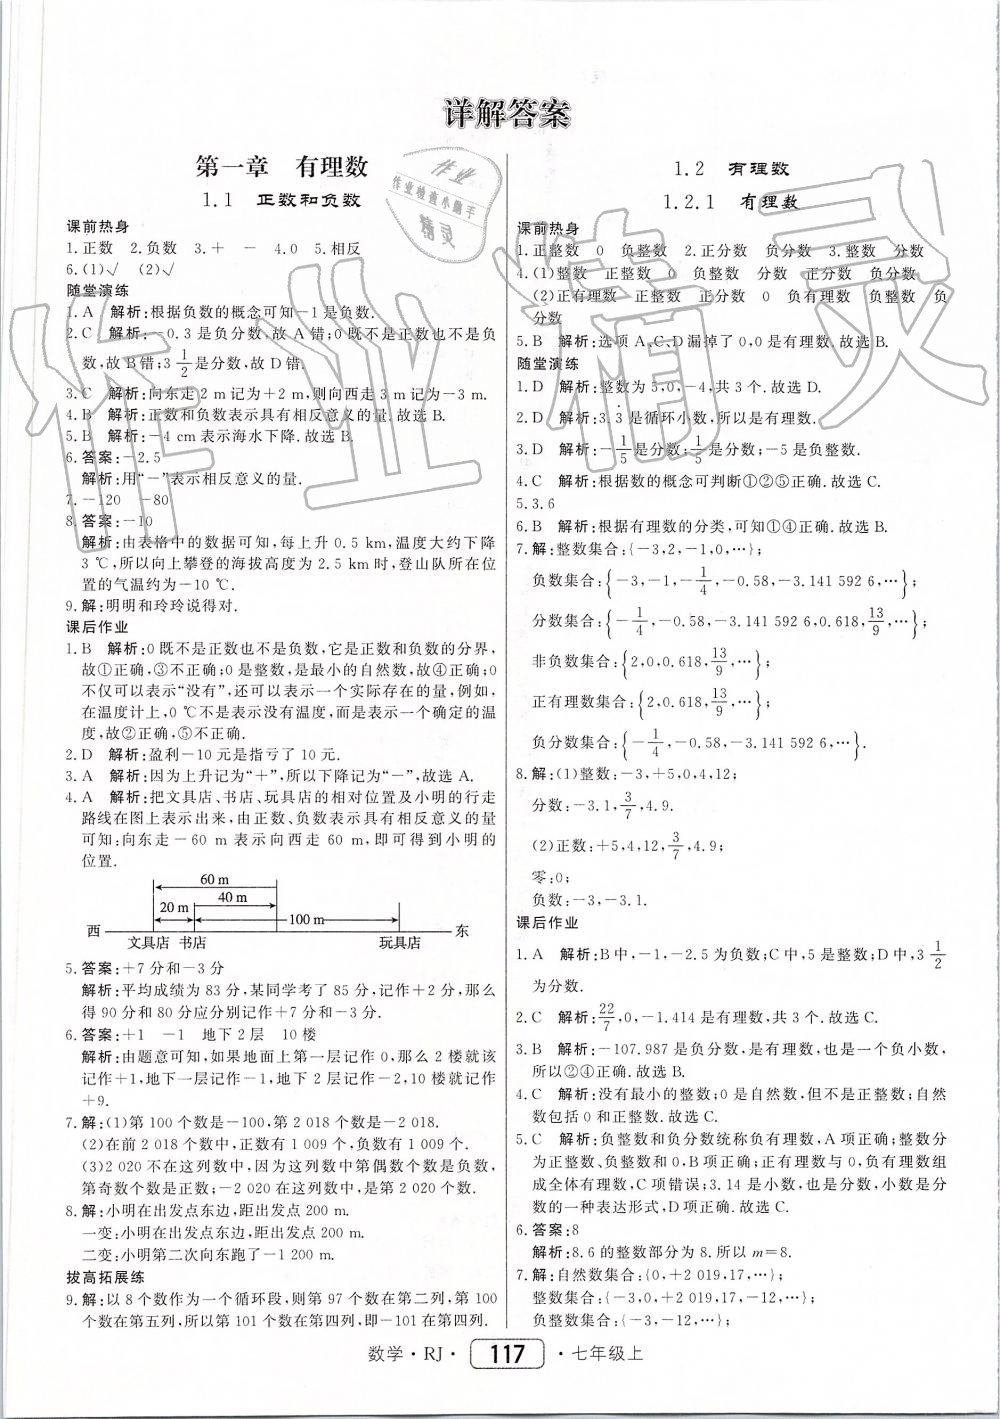 详解答案
第一章 有理数
1.1 正数和负数
课前热身
1.正数 2.负数 3.+ - 4.0 5.相反
6.(1)√ (2)√
随堂演练
1.A 解析:根据负数的概念可知-1是负数.
2.C 解析:-0.3是负分数,故A错;0既不是正数也不是负
数,故B错;3 1/2 是分数,故D错.
3.C 解析:向东走2 m记为+2 m,则向西走3 m记为-3 m.
4.B 解析:正数和负数表示具有相反意义的量.故选B.
5.B 解析:-4 cm表示海水下降.故选B.
6.答案:-2.5
解析:用“-”表示相反意义的量.
7.-120 -80
8.答案:-10
解析:由表格中的数据可知,每上升0.5 km,温度大约下降
3 ℃,所以向上攀登的海拔高度为2.5 km时,登山队所在位
置的气温约为-10 ℃.
9.解:明明和玲玲说得对.
课后作业
1.B 解析:0既不是正数也不是负数,它是正数和负数的分界,
故①正确,③不正确;0是整数,是最小的自然数,故④正确;0
不仅可以表示“没有”,还可以表示一个实际存在的量,例如,
在温度计上,0 ℃不是表示没有温度,而是表示一个确定的温
度,故②正确,⑤不正确.
2.D 解析:盈利-10元是指亏了10元.
3.A 解析:因为上升记为“+”,所以下降记为“-”,故选A.
4.A 解析:把文具店、书店、玩具店的相对位置及小明的行走
路线在图上表示出来,由正数、负数表示具有相反意义的量
可知:向东走-60 m表示向西走60 m,即可得到小明的
位置.
60 m
40 m
20 m 100 m
西 东
文具店 书店 玩具店
5.答案:+7分和-3分
解析:平均成绩为83分,某同学考了85分,记作+2分,那么
得90分和80分应分别记作+7分和-3分.
6.答案:+1 -1 地下2层 10楼
解析:由题意可知,如果地面上第一层记作0,那么2楼就该
记作+1,地下一层记作-1,地下2层记作-2,10楼就记作
+9.
7.解:(1)第100个数是-100,第2 018个数是-2 018.
(2)在前2 018个数中,正数有1 009个,负数有1 009个.
(3)2 020不在这列数中,因为这列数中第偶数个数是负数,
第奇数个数是正数;-2 020在这列数中,是第2 020个数.
8.解:小明在出发点东边,距出发点200 m.
一变:小明在出发点西边,距出发点200 m.
二变:小明第二次向东跑了-1 200 m.
拔高拓展练
9.解:以8个数作为一个循环段,则第97个数在第二列,第100
个数在第五列,所以第101个数在第四列,即-101在第四列.
1.2 有理数
1.2.1 有理数
课前热身
1.正整数 0 负整数 2.正分数 负分数 3.整数 分数
4.(1)整数 正整数 0 负整数 分数 正分数 负分数
(2)正有理数 正整数 正分数 0 负有理数 负整数 负
分数
5.B 解析:选项A、C、D漏掉了0,0是有理数.故选B.
随堂演练
1.D 解析:整数为5,0,-4,共3个.故选D.
2.D 解析:3.3̇是循环小数,所以是有理数.
3.D 解析:-1/5是分数;1/5是分数;-5是负整数.
4.C 解析:根据数的概念可判断①②⑤正确.故选C.
5.3.6
6.B 解析:根据有理数的分类,可知①④正确.故选B.
7.解:整数集合:{-3,2,-1,0,…};
负数集合:{-3,-1,-1/4,-0.58,-3.141 592 6,…};
分数集合:{-1/4,-0.58,-3.141 592 6,0.618,13/9,…};
非负数集合:{2,0,0.618,13/9,…};
正有理数集合:{2,0.618,13/9,…};
负分数集合:{-1/4,-0.58,-3.141 592 6,…}.
8.解:(1)整数:-3,+5,0,4,12;
分数:-3.1,3/7,4.9.
(2)正数:+5,4,12,3/7,4.9;
零:0;
负数:-3,-3.1.
课后作业
1.A 解析:B中,-1,-2.5为负数;C中,5是整数;D中,3 1/2
为分数.
2.C 解析:22/7,0,-1.414是有理数,共3个.故选C.
3.B 解析:-107.987是负分数,是有理数,也是一个负小数,
所以②④正确.故选B.
4.C 解析:没有最小的整数;0是自然数,但不是正整数;自然
数包括0和正整数.故选C.
5.C 解析:负整数和负分数统称负有理数,A项正确;整数分
为正整数、负整数和0,B项正确;正有理数与0,负有理数组
成全体有理数,C项错误;3.14是小数,也是分数,小数是分
数的一种表达形式,D项正确.故选C.
6.答案:8
解析:8.6的整数部分为8.所以m=8.
7.解:自然数集合:{0,+2 019,17,…};
整数集合:{-3,0,+2 019,17,-12,…};
负整数集合:{-3,-12,…};
数学·RJ· 117 ·七年级上
作业精灵
作业
作业检查小助手
精灵